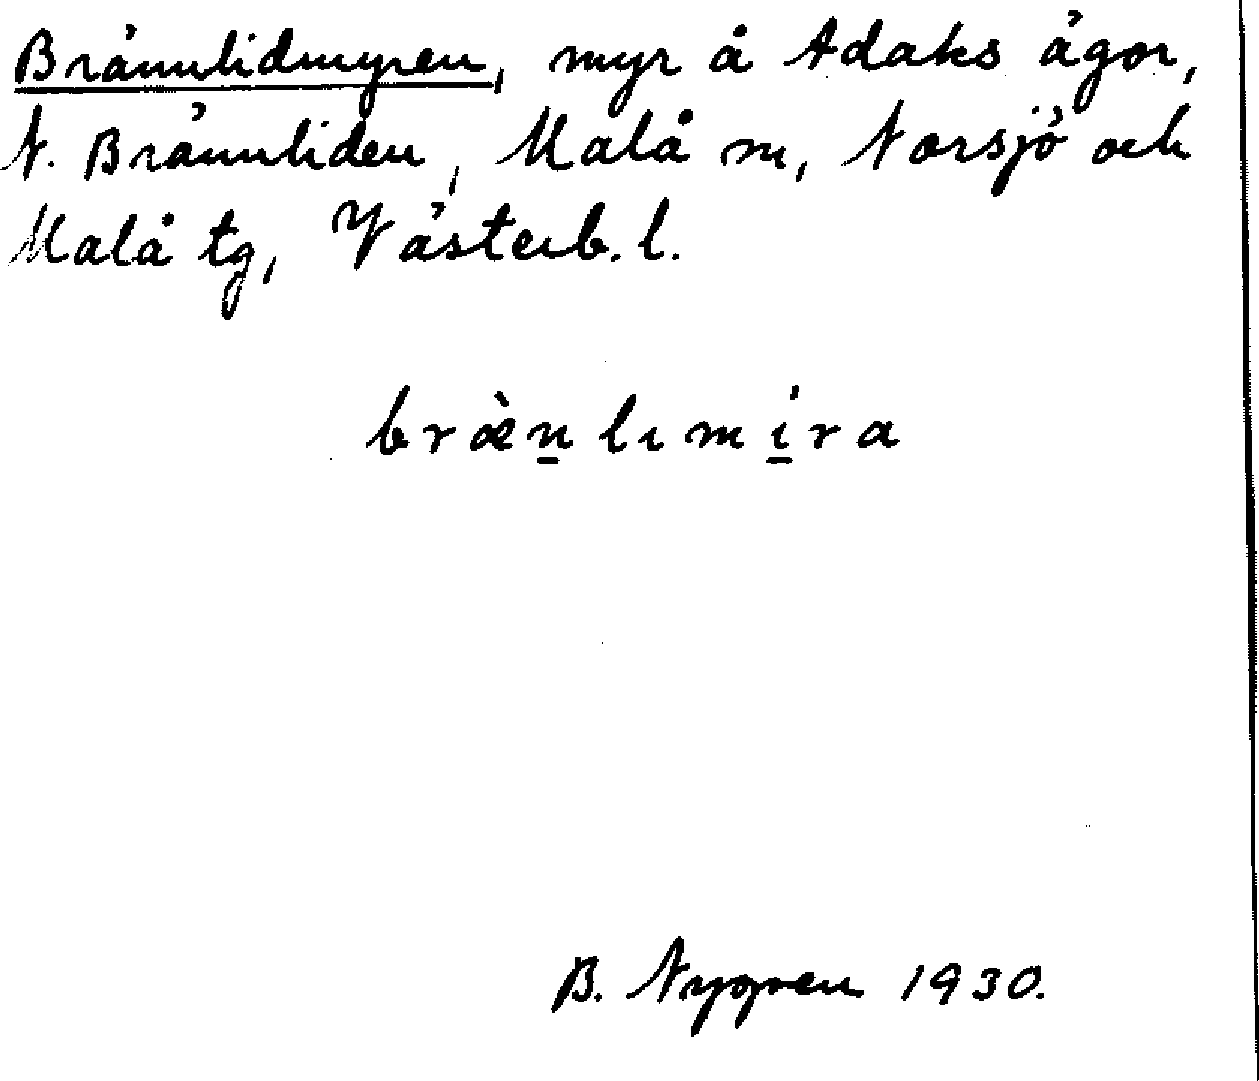 Brännlidmyren, myr å Adaks ägor,
N. Brännliden, Malå sn, Norsjö och
Malå tg, Västerb. l.
bræ̀n̲lımí̲ra
B. Nygren 1930.